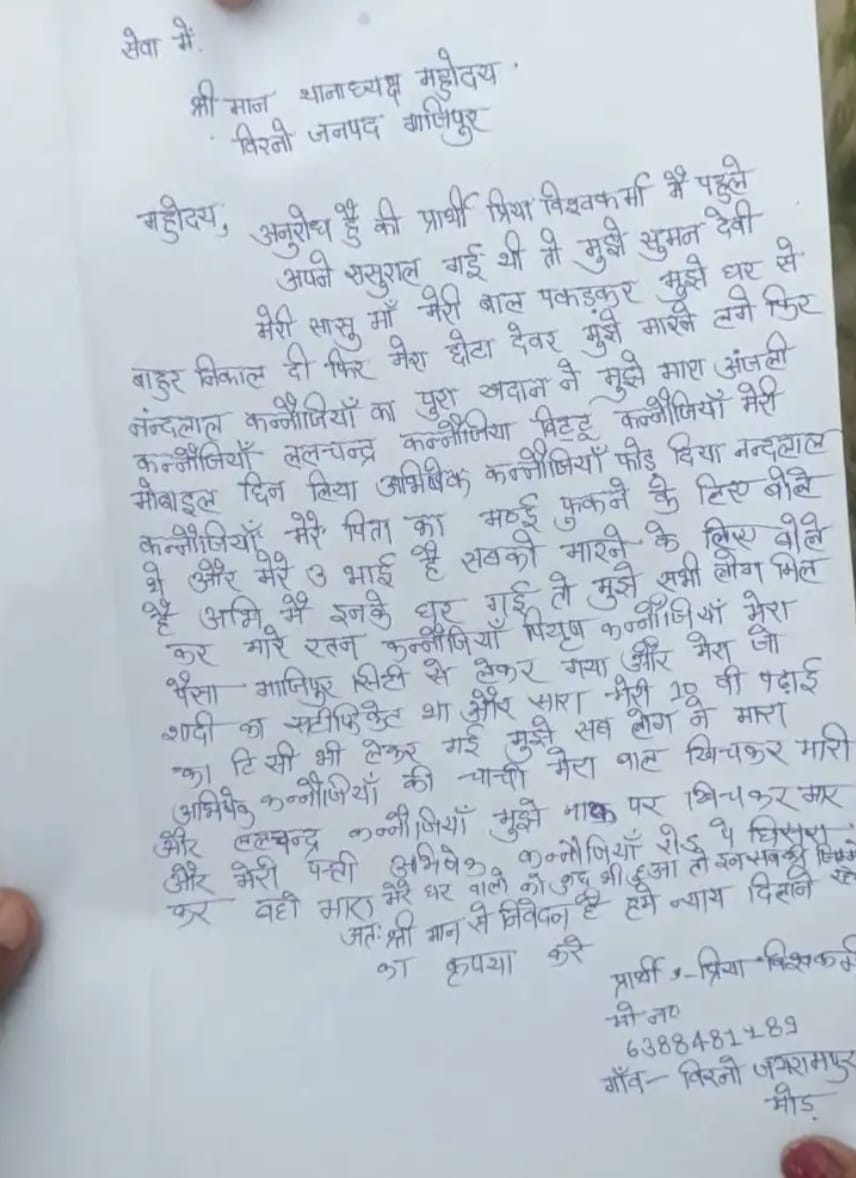 सेवा में.
श्री मान थानाध्यक्ष महोदय.
विरनो जनपद गाजिपुर
महोदय, अनुरोध है की प्रार्थी प्रिया विश्वकर्मा मै पहुले
अपने ससुराल गई थी तो मुझे सुमन देवी
मेरी सासु माँ मेरी बाल पकड़कर मुझे घर से
बाहुर निकाल दी फिर मेरा छोटा देवर मुझे मारने लगे फिर
नन्दलाल कन्नौजियाँ का पुरा खदान ने मुझे मारा अंजली
कन्नौजियाँ ललचन्द्र कन्नौजिया विट्टू कन्नौजियाँ मेरी
मोबाइल छिन लिया अभिषेक कन्नौजियाँ फोड़ दिया नन्दलाल
कन्नौजियाँ मेरे पिता का मण्ई फुकने के लिए बोले
थे और मेरे 3 भाई है सबको मारने के लिए बोले
है अभि मै इनके घुर गई तो मुझे सभी लोग मिल
कर मारे रतन कन्नौजियाँ पियुष कन्नौजियाँ मेरा
पैसा गाजिपुर सिटी से लेकर गया और मेरा जो
शादी का सर्टीफिकेट था और सारा मेरी 10 वी पढ़ाई
का टि सी भी लेकर गई मुझे सब लोग ने मारा
अभिषेक कन्नौजियाँ की चाची मेरा बाल खिचकर मारी
और ललचन्द्र कन्नौजियाँ मुझे नाक पर खिचकर मार
और मेरी पत्ती अभिषेक कन्नौजियाँ रोड पे घिसरा
कर वही मारा मेरे घर वालो को कुछ भी हुआ तो इन सबकी
अतः श्री मान से निवेदन है हमे न्याय दिलाने
का कृपया करे
प्रार्थी :- प्रिया विश्वकर्
मो न०
गाँव - विरनो जयरामपुर
मोड़